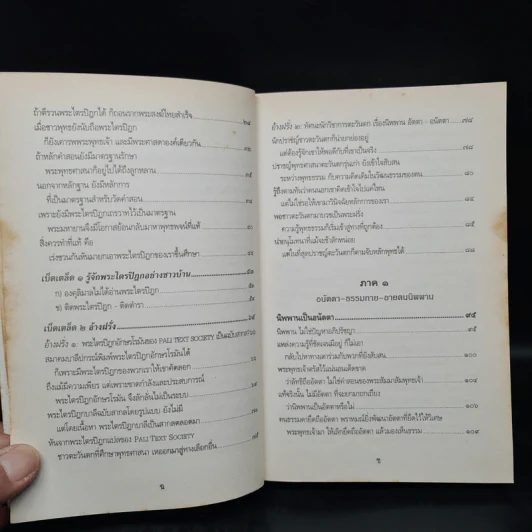 ถ้าตีรวนพระไตรปิฎกได้ ก็ถอนรากพระสงฆ์ไทยสำเร็จ
เมื่อชาวพุทธยังนับถือพระไตรปิฎก
ก็ยังเคารพพระพุทธเจ้า และมีพระศาสดาองค์เดียวกัน
ถ้าหลักคำสอนยังมีมาตรฐานรักษา
พระพุทธศาสนาก็อยู่ไปได้ถึงลูกหลาน
นอกจากหลักฐาน ยังมีหลักการ
ที่เป็นมาตรฐานสำหรับวัดคำสอน
เพราะยังมีพระไตรปิฎกเถรวาทไว้เป็นมาตรฐาน
พระมหายานจึงมีโอกาสย้อนกลับมาหาพุทธพจน์ที่แท้
สิ่งควรทำที่แท้ คือ
เร่งชวนกันหันมายกเอาพระไตรปิฎกของเราขึ้นศึกษา
เบ็ดเตล็ด ๑ รู้จักพระไตรปิฎกอย่างชาวบ้าน
ก) องคุลิมาลไม่ได้อ่านพระไตรปิฎก
ข) ติดพระไตรปิฎก - ติดตำรา
เบ็ดเตล็ด ๒ อ้างฝรั่ง
อ้างฝรั่ง ๑: พระไตรปิฎกอักษรโรมันของ PALI TEXT SOCIETY เป็นฉบับสากลหรือ
สมาคมบาลีปกรณ์พิมพ์พระไตรปิฎกอักษรโรมันได้
ก็เพราะมีพระไตรปิฎกของพวกเราให้เขาคัดลอก
ถึงแม้มีความเพียร แต่เพราะขาดกำลังและประสบการณ์
พระไตรปิฎกอักษรโรมัน จึงลักลั่นไม่เป็นระบบ
พระไตรปิฎกบาลีฉบับสากลโดยรูปแบบ ยังไม่มี
แต่โดยเนื้อหา พระไตรปิฎกบาลีเป็นสากลตลอดมา
หันจากพระไตรปิฎกแปลของ PALI TEXT SOCIETY
ชาวตะวันตกที่ศึกษาพุทธศาสนา เหออกมาสู่ทางเลือกอื่น
อ้างฝรั่ง ๒: ทัศนะนักวิชาการตะวันตก เรื่องนิพพาน อัตตา - อนัตตา ๗๘
นักปราชญ์ตะวันตกก็น่ายกย่องอยู่
แต่ต้องรู้จักเขาให้พอดีกับที่เขาเป็นจริง
ปราชญ์พุทธศาสนาตะวันตกรุ่นเก่า ยังเข้าใจสับสน
ระหว่างพุทธธรรม กับความคิดเดิมในวัฒนธรรมของตน
รู้ถึงตามทันว่าคนนอกเขาคิดเข้าใจไปแค่ไหน
แต่ไม่ใช่รอให้เขามาวินิจฉัยหลักการของเรา
พอชาวตะวันตกมาบวชเป็นพระฝรั่ง
ความรู้พุทธธรรมก็เริ่มเข้าสู่ทางที่ถูกต้อง
น่าอนุโมทนาที่แม้จะช้าสักหน่อย
แต่ในที่สุดปราชญ์ตะวันตกก็ตามจับหลักพุทธได้
ภาค ๑
อนัตตา-ธรรมกาย-อายตนนิพพาน
นิพพานเป็นอนัตตา ๙๕
นิพพาน ไม่ใช่ปัญหาอภิปรัชญา ๙๕
แหล่งความรู้ที่ชัดเจนมีอยู่ ก็ไม่เอา
กลับไปหาทางเดาร่วมกับพวกที่ยังสับสน ๑๐๐
พระพุทธเจ้าตรัสไว้แน่นอนเด็ดขาด
ว่าลัทธิถืออัตตา ไม่ใช่คำสอนของพระสัมมาสัมพุทธเจ้า ๑๐๔
แท้จริงนั้น ไม่มีอัตตา ที่จะเอามาถกเถียง
ว่านิพพานเป็นอัตตาหรือไม่ ๑๐๖
คนธรรมดายึดถืออัตตา พราหมณ์ยิ่งพัฒนาอัตตาที่ยึดไว้ให้วิเศษ
พระพุทธเจ้ามา ให้เลิกยึดถืออัตตา แล้วมองเห็นธรรม
ช